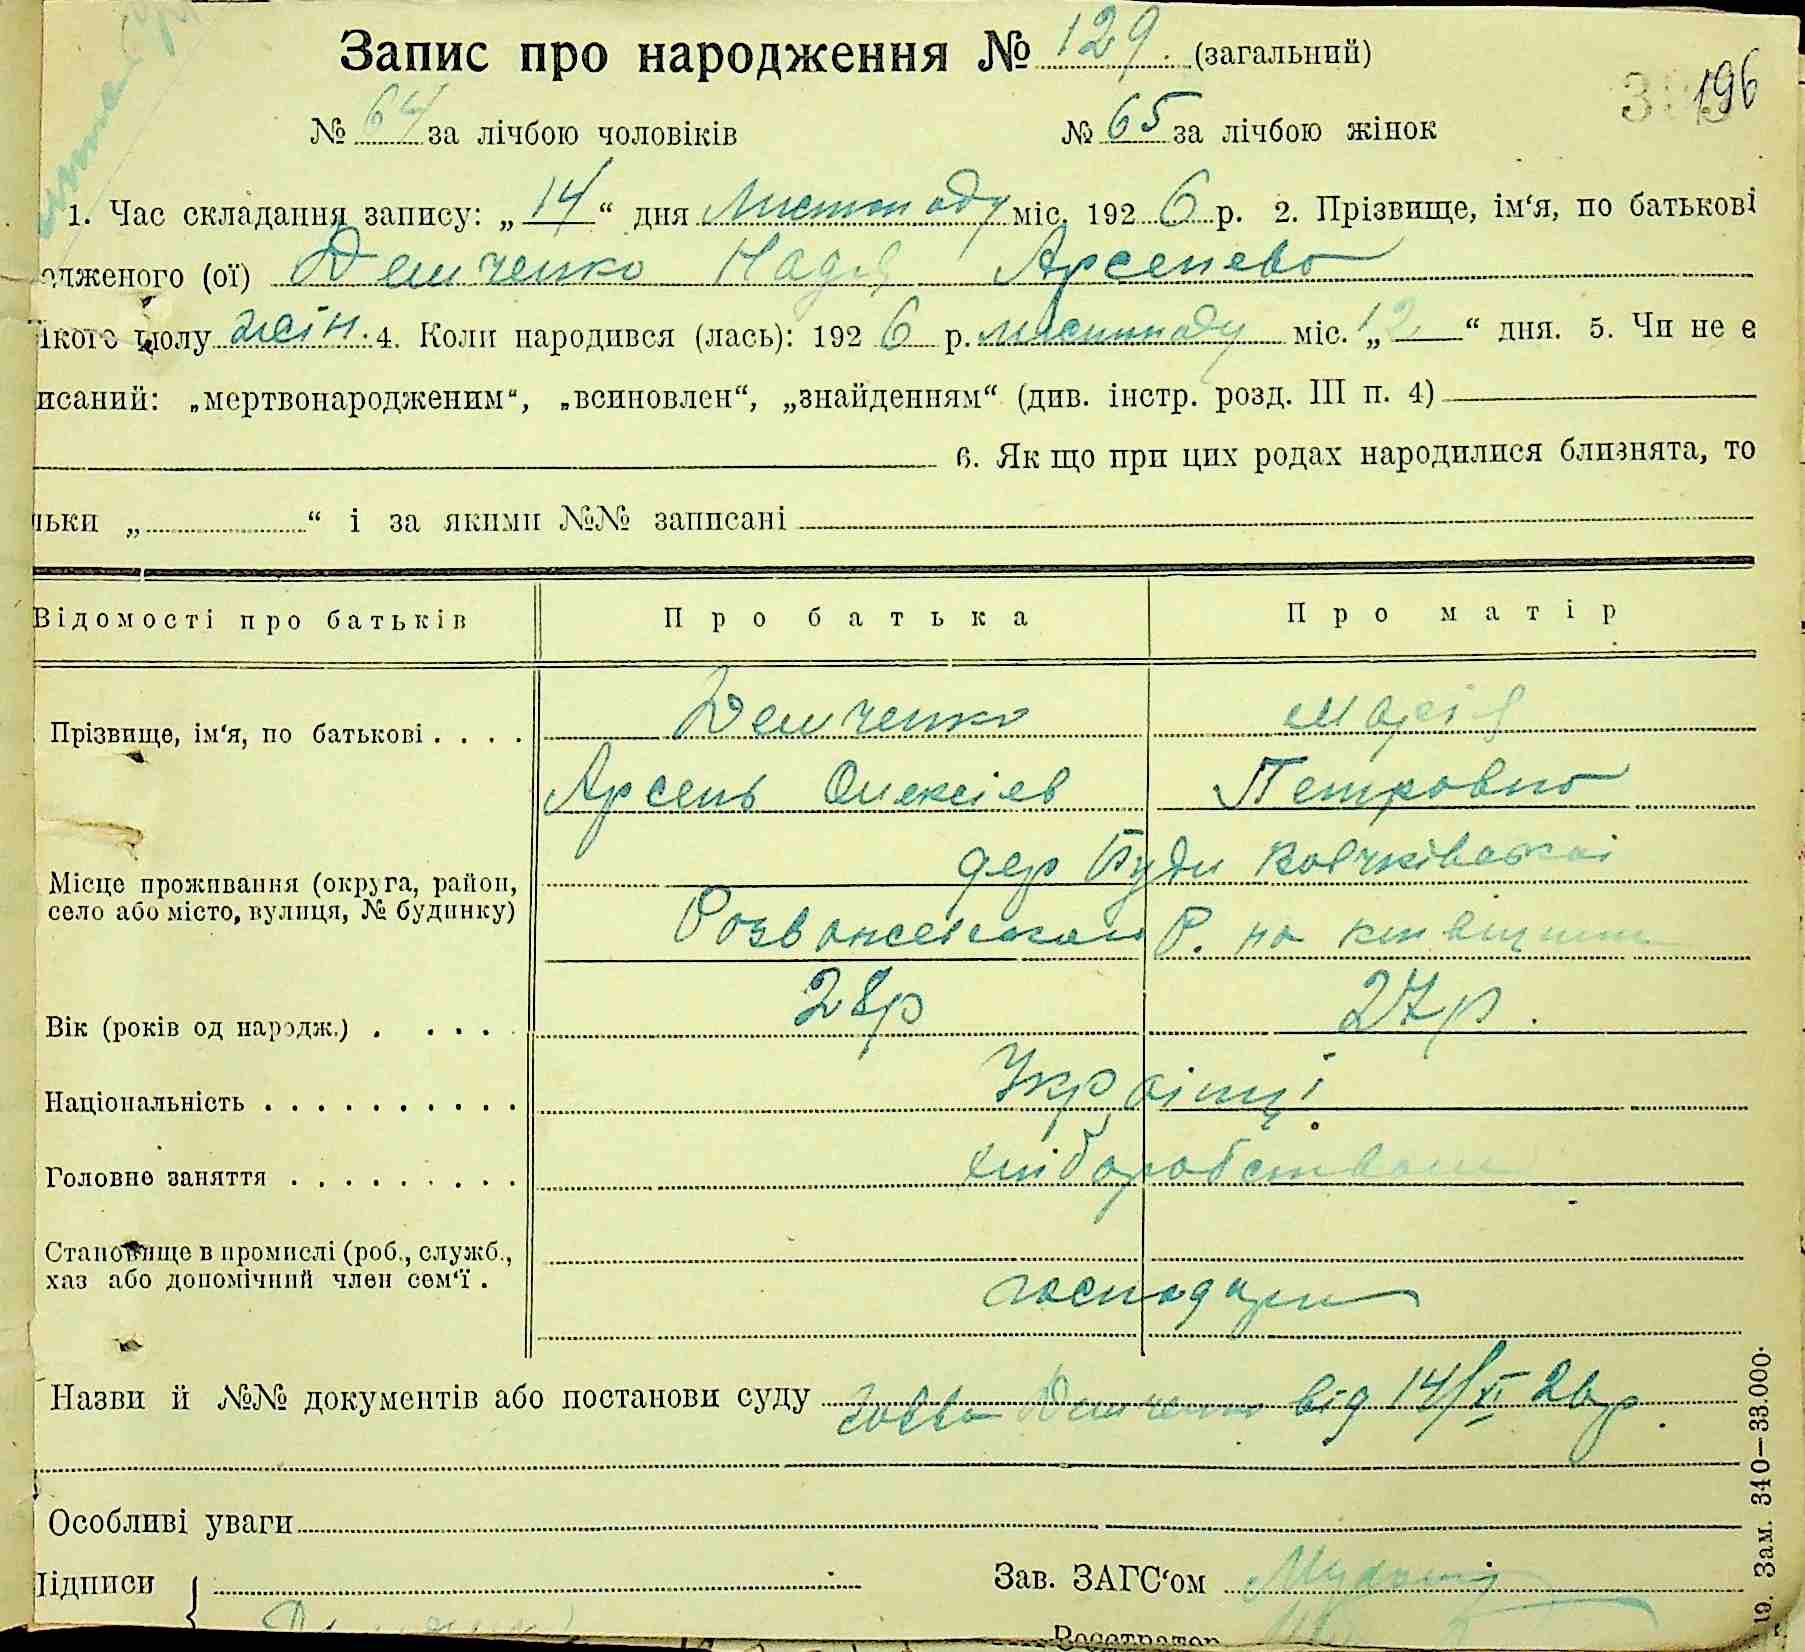 Запис про народження № 129. (загальний)
196
№ 64 за лічбою чоловіків № 65 за лічбою жінок
1. Час складання запису: „14“ дня Листопаду міс. 1926 р. 2. Прізвище, ім‘я, по батькові
одженого (ої) Демченко Надія Арсенева
якого полу жін. 4. Коли народився (лась): 1926 р. листопаду міс. „12“ дня. 5. Чи не є
исаний: „мертвонародженим“, „всиновлен“, „знайденням“ (див. інстр. розд. III п. 4)
6. Як що при цих родах народилися близнята, то
льки „ “ і за якими №№ записані
Відомості про батьків Про батька Про матір
Прізвище, ім‘я, по батькові . . . . Демченко Марія
Арсень Олексієв Петровна
Місце проживання (округа, район, село або місто, вулиця, № будинку) дер Буди
Розважевськаго Р. на Київщині
Вік (років од народж.) . . . . . 28р 27р.
Національність . . . . . . . . . . . Українці
Головне заняття . . . . . . . . . . хліборобством
Становище в промислі (роб., служб.,
хаз або допомічний член сем‘ї . господари
Назви й №№ документів або постанови суду Демченко від 14/XI 26р.
Особливі уваги
Підписи { Зав. ЗАГС‘ом
Реєстратор
19. Зам. 340—33.000.